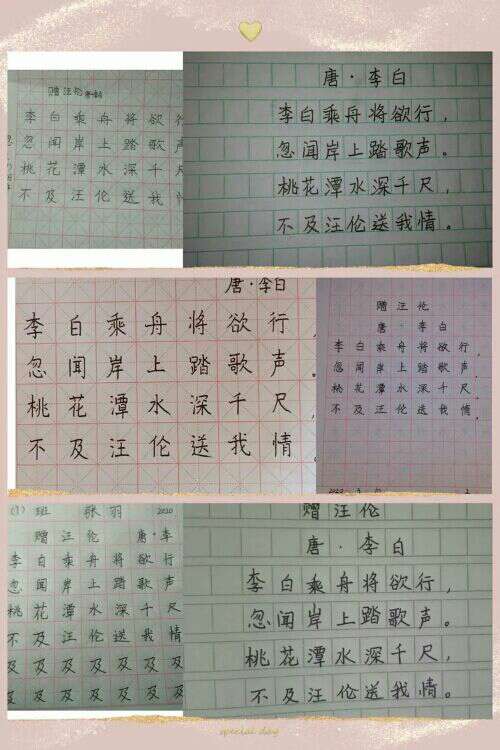 赠汪伦
李白乘舟将欲行
忽闻岸上踏歌声
桃花潭水深千尺
不及汪伦送我情
唐·李白
李白乘舟将欲行，
忽闻岸上踏歌声。
桃花潭水深千尺，
不及汪伦送我情。
唐·李白
李白乘舟将欲行
忽闻岸上踏歌声
桃花潭水深千尺
不及汪伦送我情
赠汪伦
唐·李白
李白乘舟将欲行，
忽闻岸上踏歌声，
桃花潭水深千尺，
不及汪伦送我情，
(1) 班 张羽 2020
赠汪伦 唐·李
李白乘舟将欲行
忽闻岸上踏歌声
桃花潭水深千尺
不及汪伦送我情
及及及及及及及
及及及及及及及
赠汪伦
唐·李白
李白乘舟将欲行，
忽闻岸上踏歌声。
桃花潭水深千尺，
不及汪伦送我情。
special day